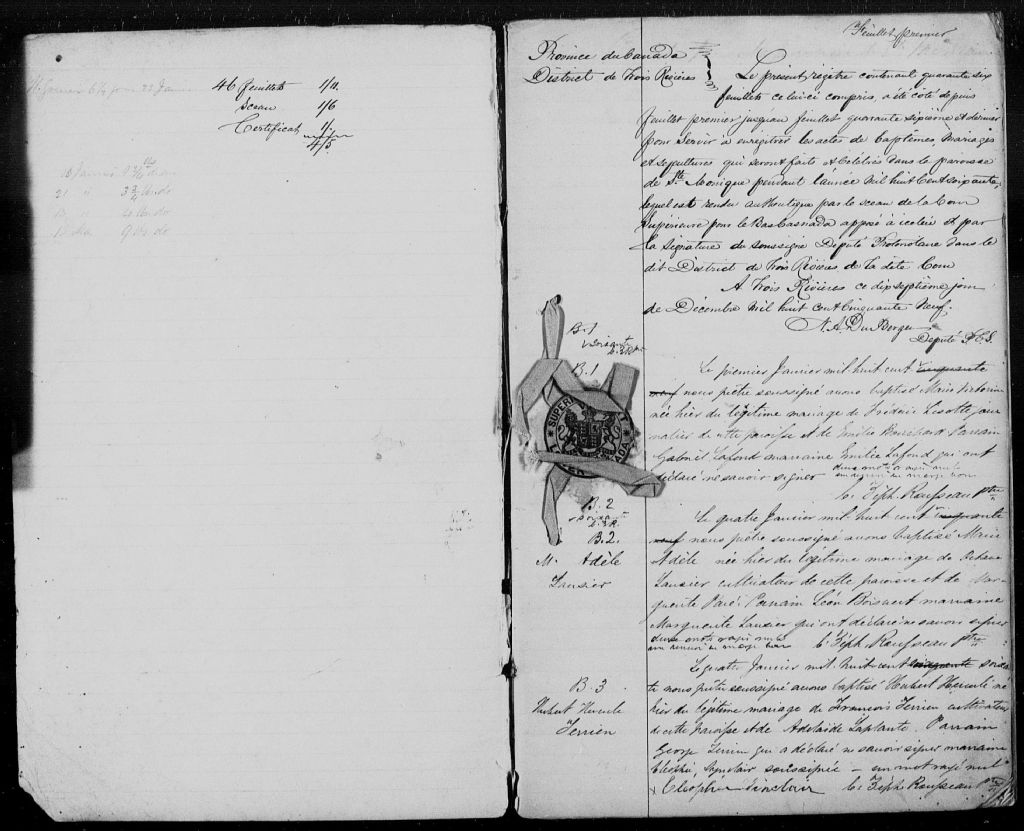 46 feuillets 1/11.
Sceau 1/6
Certificat 1/.
4/5
21 " 3 3/4
Feuillet premier
Province du Canada
District de Trois Rivières
Le présent régistre contenant quarante six
feuillets celui ci compris, a été coté depuis
feuillet premier jusquau feuillet quarante sixième et dernier
pour servir a enregistrer les actes de baptêmes, mariages
et sepultures qui seront faits et célébrés dans la paroisse
de Ste Monique pendant l'année mil huit cent soixante,
lequel est rendu authentique par le sceau de la Cour
Supérieure pour le Bas Canada apposé à icelui et par
la signature du soussigné Député Protonotaire dans le
dit District de Trois Rivières de la dite Cour
A Trois Rivières ce dix septième jour
de Décembre mil huit cent cinquante neuf.
Deputé P.C.S.
B. 1
soixante
B. 1
SUPERI
CANADA
Le premier Janvier mil huit cent cinquante
neuf nous prêtre soussigné avons baptisé Marie Victorine
née hier du légitime mariage de Fréderic Lesotte jour
nalier de cette paroisse et de Emilie Parrain
Gabriel Lafond marraine Emilie Lafond qui ont
déclaré ne savoir signer deux mots rayés nuls
en marge bon
C: Zéph. Rousseau Ptre
B. 2
soixante
B. 2.
M. Adèle
Lausier
Le quatre Janvier mil huit cent cinquante
neuf nous prêtre soussigné avons baptisé Marie
Adèle née hier du légitime mariage de
Lausier cultivateur de cette paroisse et de Mar
guerite Paré. Parrain Léon Boisvert marraine
Marguerite Lausier qui ont déclaré ne savoir signer
deux mots rayés nuls
en marge bon C: Zéph. Rousseau Ptre
B. 3
Hubert Hercule
Terrien
Le quatre Janvier mil huit cent cinquante soixan
te nous prêtre soussigné avons baptisé Hubert Hercule né
hier du légitime mariage de François Terrien cultivateur
de cette paroisse et de Adelaide Laplante. Parrain
George Terrien qui a déclaré ne savoir signer marraine
Cléophée Synclair soussignée — un mot rayé nul
x Cléophée Sinclair C: Zéph. Rousseau Ptre